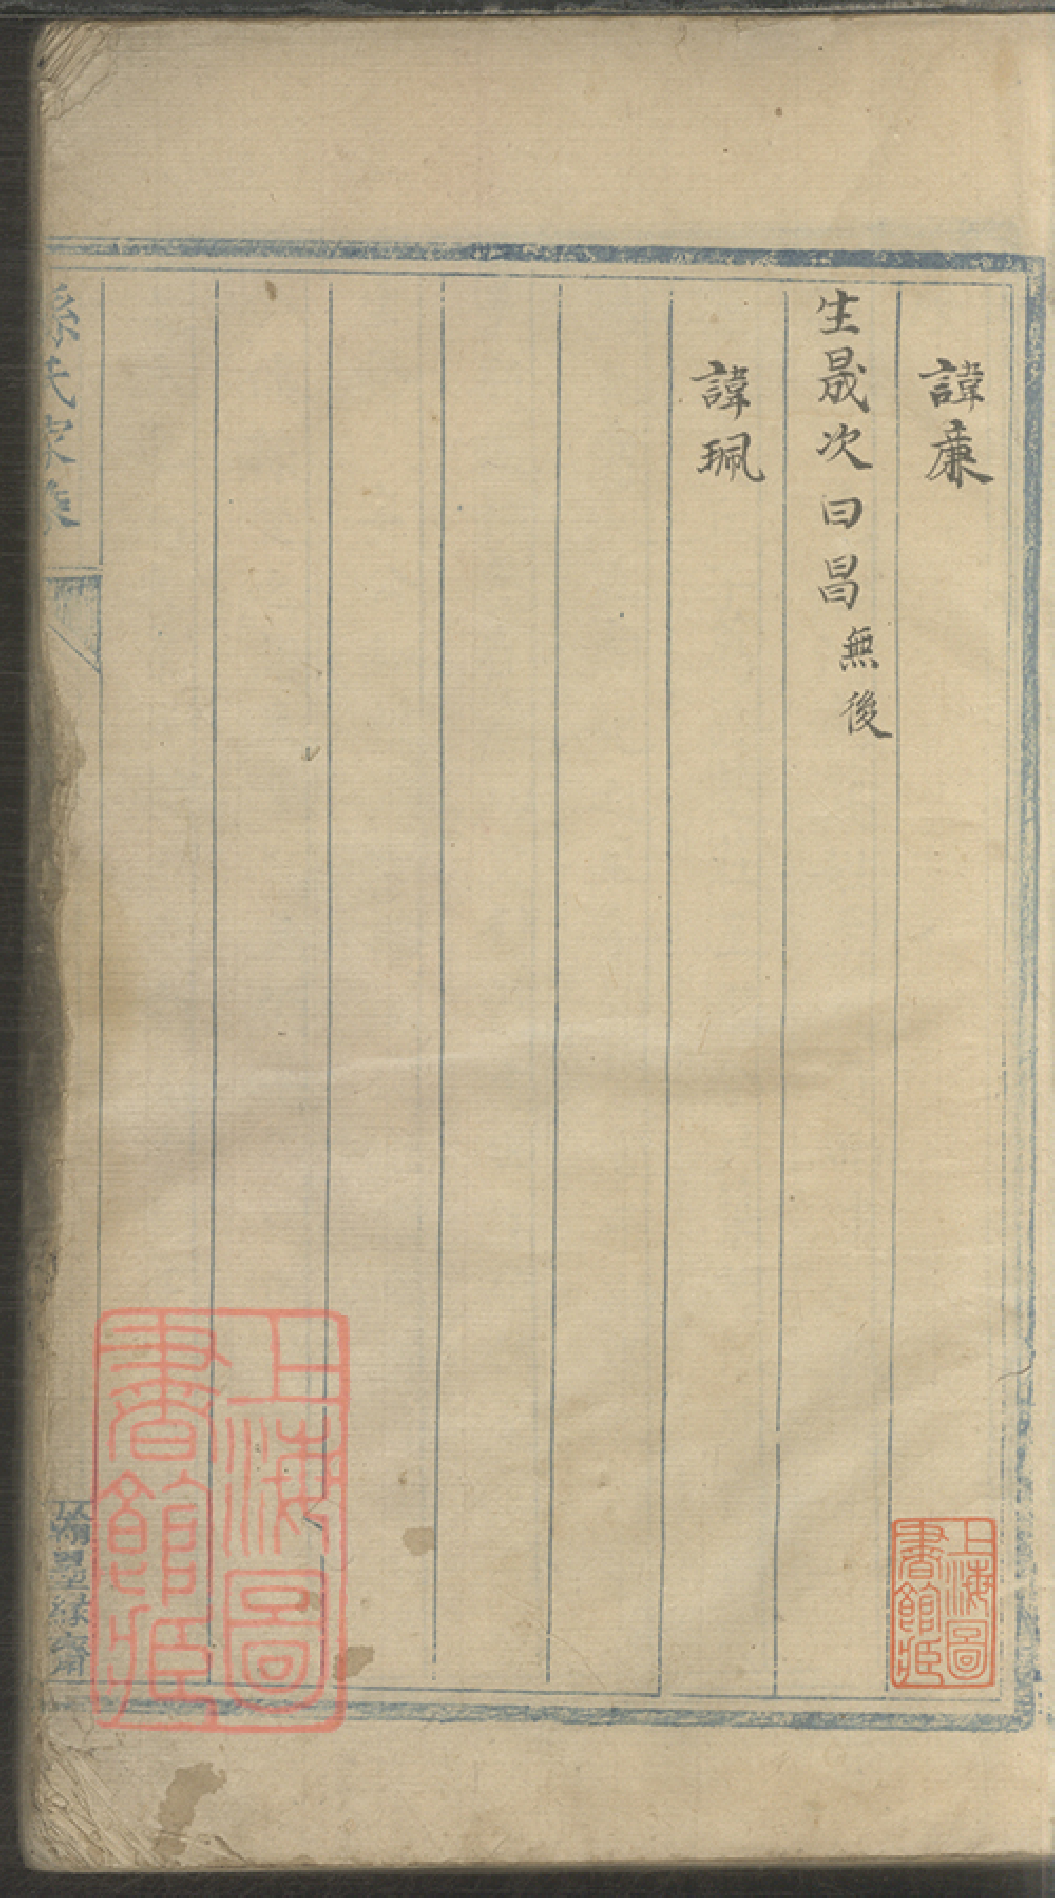 諱廉
生晟次曰昌無後
諱珮
上海圖書館藏
上海圖書館藏